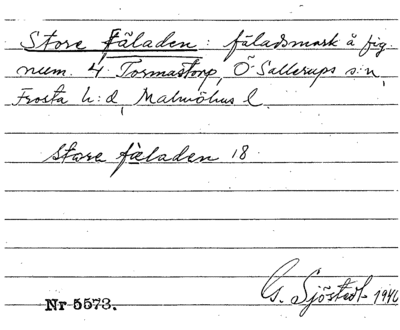 Store fäladen : fäladsmark å fig.
num. 4 Tormastorp, Ö Sallerups s:n,
Frosta h:d, Malmöhus l.
Store fäladen 18
G. Sjöstedt 1946
Nr 5573.